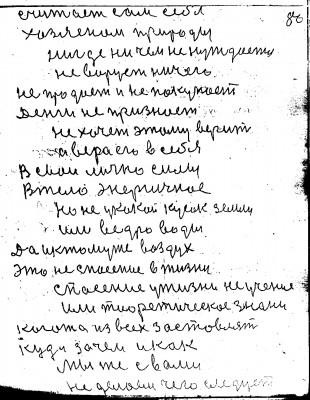 86
считает сам себя
хозяеном природы
нигде ничем не нуждаетс
не верует ничего
не продает и не покупает
Денги не признает
не хочет этому верит
а вера его в себя
В свои лично силы
В тело энергичное
Но не укакой кусок земли
или ведро воды
Да и ктомуже воздух
Это не спасение в жизни
спасение у жизни не учение
или тиоретическое знани
когота из всех заставлят
куда зачем и как
мы же с вами
не делаем чего следует